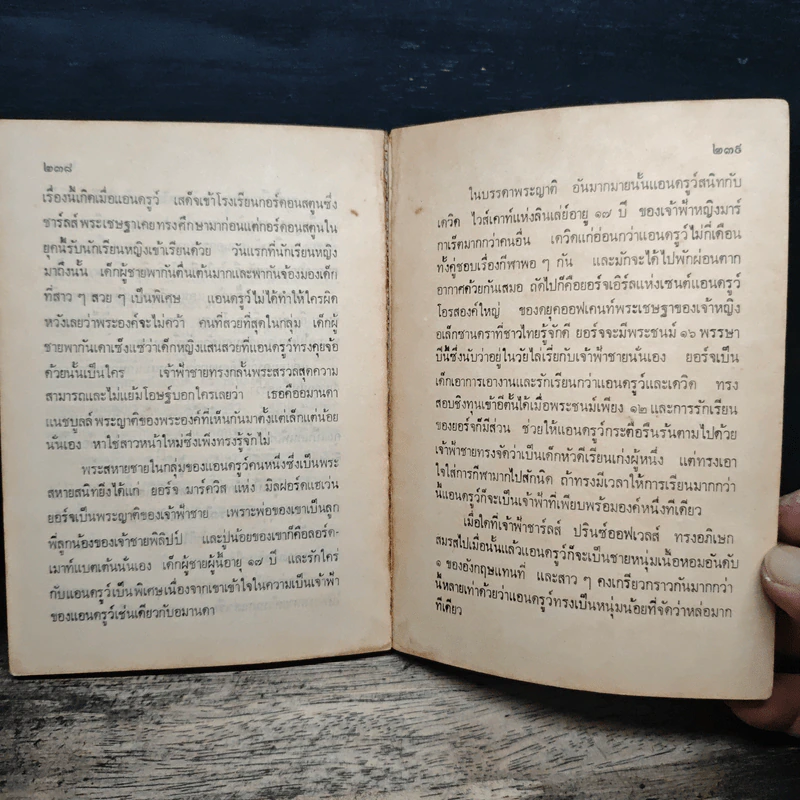 ๒๓๘
เรื่องนี้เกิดเมื่อแอนดรูว์ เสด็จเข้าโรงเรียนกอร์ดอนสตูนซึ่ง
ชาร์ลส์พระเชษฐาเคยทรงศึกษามาก่อนแต่กอร์ดอนสตูนใน
ยุคนี้รับนักเรียนหญิงเข้าเรียนด้วย วันแรกที่นักเรียนหญิง
มาถึงนั้น เด็กผู้ชายพากันตื่นเต้นมากและพากันจ้องมองเด็ก
ที่สาว ๆ สวย ๆ เป็นพิเศษ แอนดรูว์ไม่ได้ทำให้ใครผิด
หวังเลยว่าพระองค์จะไม่คว้า คนที่สวยที่สุดในกลุ่ม เด็กผู้
ชายพากันเดาเซ็งแซ่ว่าเด็กหญิงแสนสวยที่แอนดรูว์ทรงคุยจ้อ
ด้วยนั้นเป็นใคร เจ้าฟ้าชายทรงกลั้นพระสรวลสุดความ
สามารถและไม่แย้มโอษฐ์บอกใครเลยว่า เธอคืออมานดา
แนชบูลล์พระญาติของพระองค์ที่เห็นกันมาตั้งแต่เล็กแต่น้อย
นั่นเอง หาใช่สาวหน้าใหม่ซึ่งเพิ่งทรงรู้จักไม่
พระสหายชายในกลุ่มของแอนดรูว์คนหนึ่งซึ่งเป็นพระ
สหายสนิทยิ่งได้แก่ ยอร์จ มาร์ควิส แห่ง มิลฟอร์ดแฮเว่น
ยอร์จเป็นพระญาติของเจ้าฟ้าชาย เพราะพ่อของเขาเป็นลูก
พี่ลูกน้องของเจ้าชายพิลิปป์ และปู่น้อยของเขาก็คือลอร์ด-
เมาท์แบตเตนนั่นเอง เด็กผู้ชายผู้นี้อายุ ๑๗ ปี และรักใคร่
กับแอนดรูว์เป็นพิเศษเนื่องจากเขาเข้าใจในความเป็นเจ้าฟ้า
ของแอนดรูว์เช่นเดียวกับอมานดา
๒๓๙
ในบรรดาพระญาติ อันมากมายนั้นแอนดรูว์สนิทกับ
เดวิด ไวส์เคาท์แห่งลินเล่ย์อายุ ๑๗ ปี ของเจ้าฟ้าหญิงมาร์
กาเร็ตมากกว่าคนอื่น เดวิดแก่อ่อนกว่าแอนดรูว์ไม่กี่เดือน
ทั้งคู่ชอบเรื่องกีฬาพอ ๆ กัน และมักจะได้ไปพักผ่อนตาก
อากาศด้วยกันเสมอ ถัดไปก็คือยอร์จเอิร์ลแห่งเซนต์แอนดรูว์
โอรสองค์ใหญ่ ของดยุคออฟเคนท์พระเชษฐาของเจ้าหญิง
อเล็กซานดราที่ชาวไทยรู้จักดี ยอร์จจะมีพระชนม์ ๑๖ พรรษา
ปีนี้ซึ่งนับว่าอยู่ในวัยไล่เรี่ยกับเจ้าฟ้าชายนั่นเอง ยอร์จเป็น
เด็กเอาการเอางานและรักเรียนกว่าแอนดรูว์และเดวิด ทรง
สอบชิงทุนเข้าอีตั้นได้เมื่อพระชนม์เพียง ๑๒ และการรักเรียน
ของยอร์จก็มีส่วน ช่วยให้แอนดรูว์กระตือรือร้นตามไปด้วย
เจ้าฟ้าชายทรงจัดว่าเป็นเด็กหัวดีเรียนเก่งผู้หนึ่ง แต่ทรงเอา
ใจใส่การกีฬามากไปสักนิด ถ้าทรงมีเวลาให้การเรียนมากกว่า
นี้แอนดรูว์ก็จะเป็นเจ้าฟ้าที่เพียบพร้อมองค์หนึ่งทีเดียว
เมื่อใดที่เจ้าฟ้าชาร์ลส์ ปรินซ์ออฟเวลส์ ทรงอภิเษก
สมรสไปเมื่อนั้นแล้วแอนดรูว์ก็จะเป็นชายหนุ่มเนื้อหอมอันดับ
๑ ของอังกฤษแทนที่ และสาว ๆ คงเกรียวกราวกันมากกว่า
นี้หลายเท่าด้วยว่าแอนดรูว์ทรงเป็นหนุ่มน้อยที่จัดว่าหล่อมาก
ทีเดียว